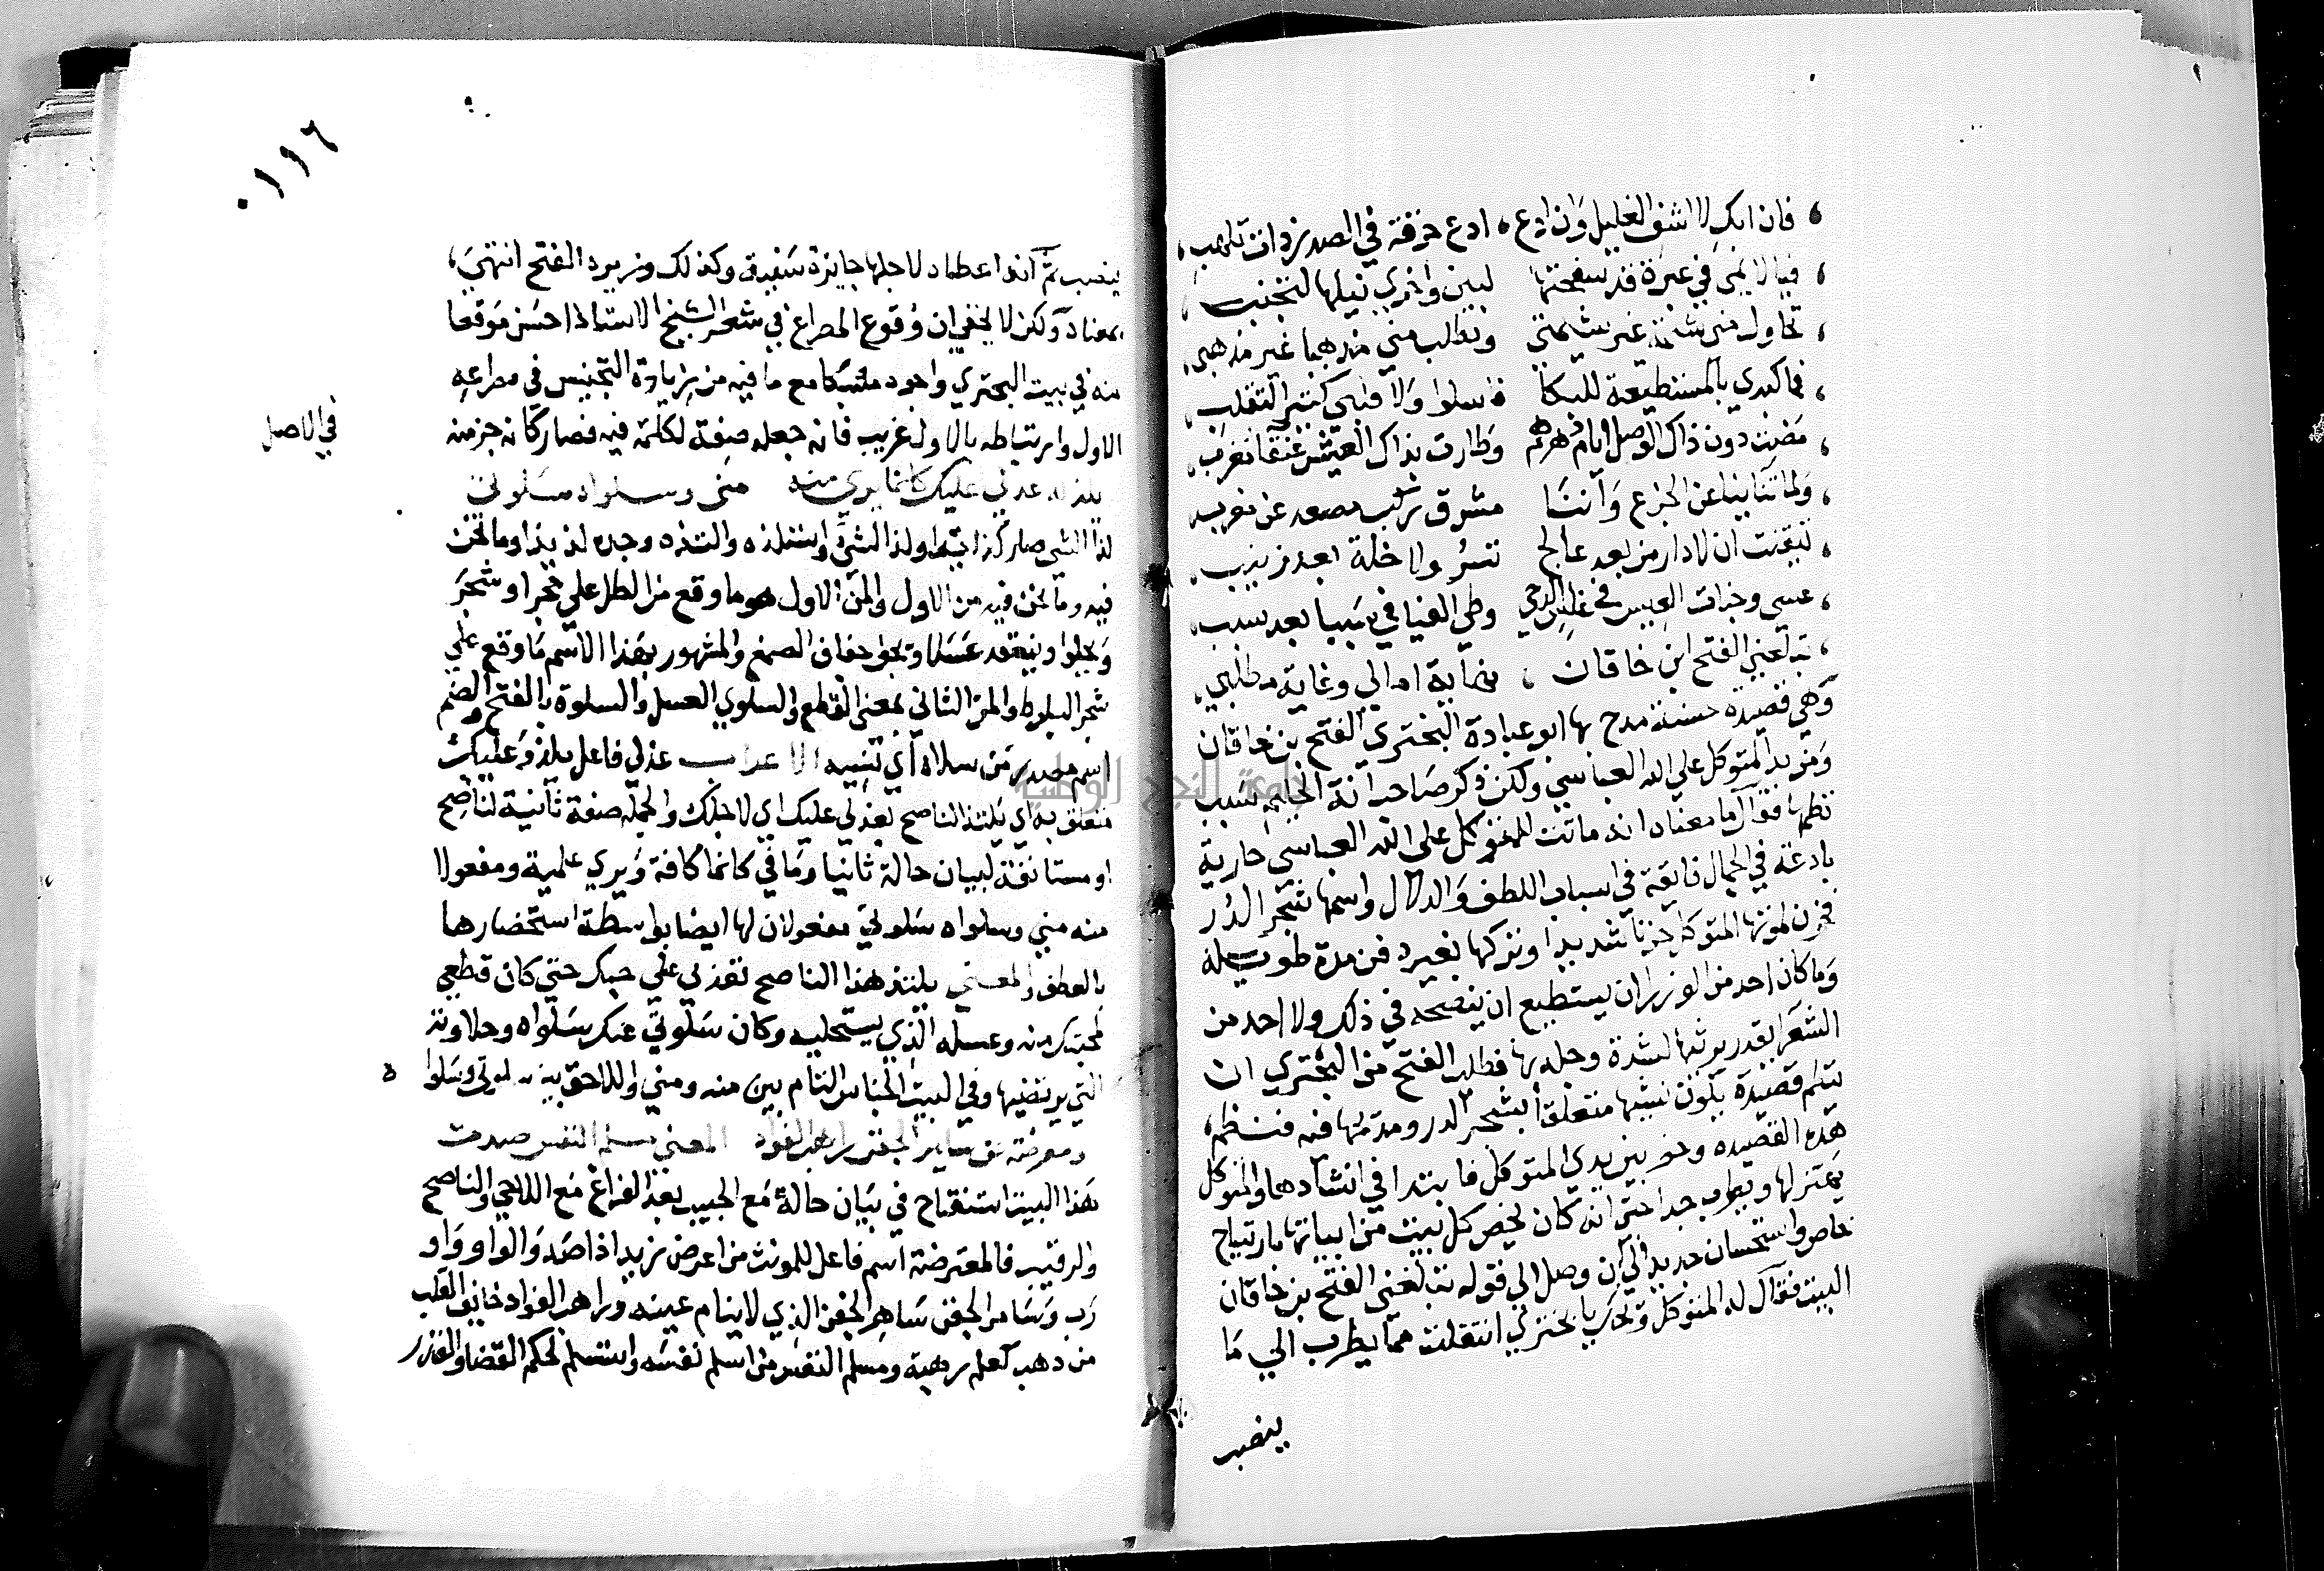 فان ابك لا اشف الغليل وان ادع ، ادع حرقة في الصدر ذات تلهب ،
فيا لائمي في عبرة قد سفحتها لبين واخري نيلها لتجنب
تحاول مني شيمة غير شيمتي وتطلب مني مذهبا غير مذهبي
فما كبدي بالمستطيعة للبكا فاسلوا ولا قلبي كثير التقلب
مضت دون ذاك الوصل ايام وطارت بذاك العيش عنقا مغرب
ولما تناينا عن الجزع وانتا مشرق ركب مصعد عن مغرب
تيقنت ان لا دار من بعد عالج تسر ولا خلة بعد زينب
عسي وجنات العيس في غلس الدجي وطي الفيافي سبسبا بعد سبسب
تبلغني الفتح ابن خاقان ، نهاية امالي وغاية مطلبي
وهي قصيدة حسنة مدح بها ابو عبادة البختري الفتح بن خاقان
وزير المتوكل علي الله العباسي ولكن ذكر صاحب انة الجليس سبب
نظمها فقال ما معناه انه ماتت للمتوكل علي الله العباسي جارية
بادعة في الجمال فايقة في اسباب اللطف والدلال واسمها شجر الدر
فحزن لموتها المتوكل حزنا شديدا وتركها بغير دفن مدة طويلة
وما كان احد من الوزرا ان يستطيع ان ينصحه في ذلك ولا احد من
الشعرا يقدر يرثيها لشدة وجله بها فطلب الفتح من البختري ان
ينظم قصيدة يكون نسيبها متعلقا بشجر الدر ومدتها فيه فنظم
هذه القصيده وحضر بين يدي المتوكل فابتدا في انشادها والمتوكل
يهتز لها ويطرب جدا حتي انه كان يخص كل بيت من ابياتها بارتياح
خاص واستحسان جديد الي ان وصل الي قوله تبلغني الفتح بن خاقان
البيت فقال له المتوكل وتحرك يا بختري انتقلت مما يطرب الي ما
ينصب
١١٦
ينصب ثم انه اعطاه لاجلها جايزة سنية وكذلك وزيره الفتح انتهي ،
بمعناه ولكن لا يخفي ان وقوع المصراع في شعر الشيخ الاستاذ احسن موقعا
منه في بيت البحتري واجود سبكا مع ما فيه من زيادة التجنيس في مصراعه
الاول وارتباطه بالاول غريب فانه جعله صفة لكلمة فيه فصار كانه جز منه
في الاصل
يلذ له عذلي عليك كانما يري منه مني وسلواه سلوتي
لذ الشي صار لذيذا ولذ الشي واستلذه والتذه وجده لذيذا وما نحن
فيه وما نحن فيه من الاول والمن الاول هو ما وقع من الطل علي حجر او شجر
ويحلوا وينعقد عسلا ويجف جفاف الصمغ والمشهور بهذا الاسم ما وقع علي
شجر البلوط والمن الثاني بمعني القطع والسلوي العسل والسلوة بالفتح والضم
اسم مصدر من سلاه اي نسيه الاعراب عذلي فاعل يلذ وعليك
متعلق به اي يلتذ الناصح بعذلي عليك اي لاجلك والجملة صفة ثانية لناصح
او مستانفة لبيان حالة ثانيا وما في كانما كافة ويري علمية ومفعولا
منه مني وسلواه سلوتي مفعولان لها ايضا بواسطة استحضارها
بالعطف والمعني يلتذ هذا الناصح بعذلي علي حبك حتي كان قطعي
لمحبتك منه وعسله الذي يستحليه وكان سلوتي عنك سلواه وحلاوته
التي يرتضيها وفي البيت الجناس التام بين منه ومني واللاحق بين سلوتي وسلواه
ومعرضة عن سامر الجفن راهب الفواد المعني مسلم النفس صدت
هذا البيت استفتاح في بيان حاله مع الحبيب بعد الفراغ مع اللاحي والناصح
والرقيب فالمعترضة اسم فاعل للمونث من اعرض زيد اذا صد والواو واو
رب وسامر الجفن ساهر الجفن الذي لا ينام عينه وراهب الفواد خايف القلب
من رهب كعلم رهبة ومسلم النفس من اسلم نفسه واستسلم لحكم القضا والقدر